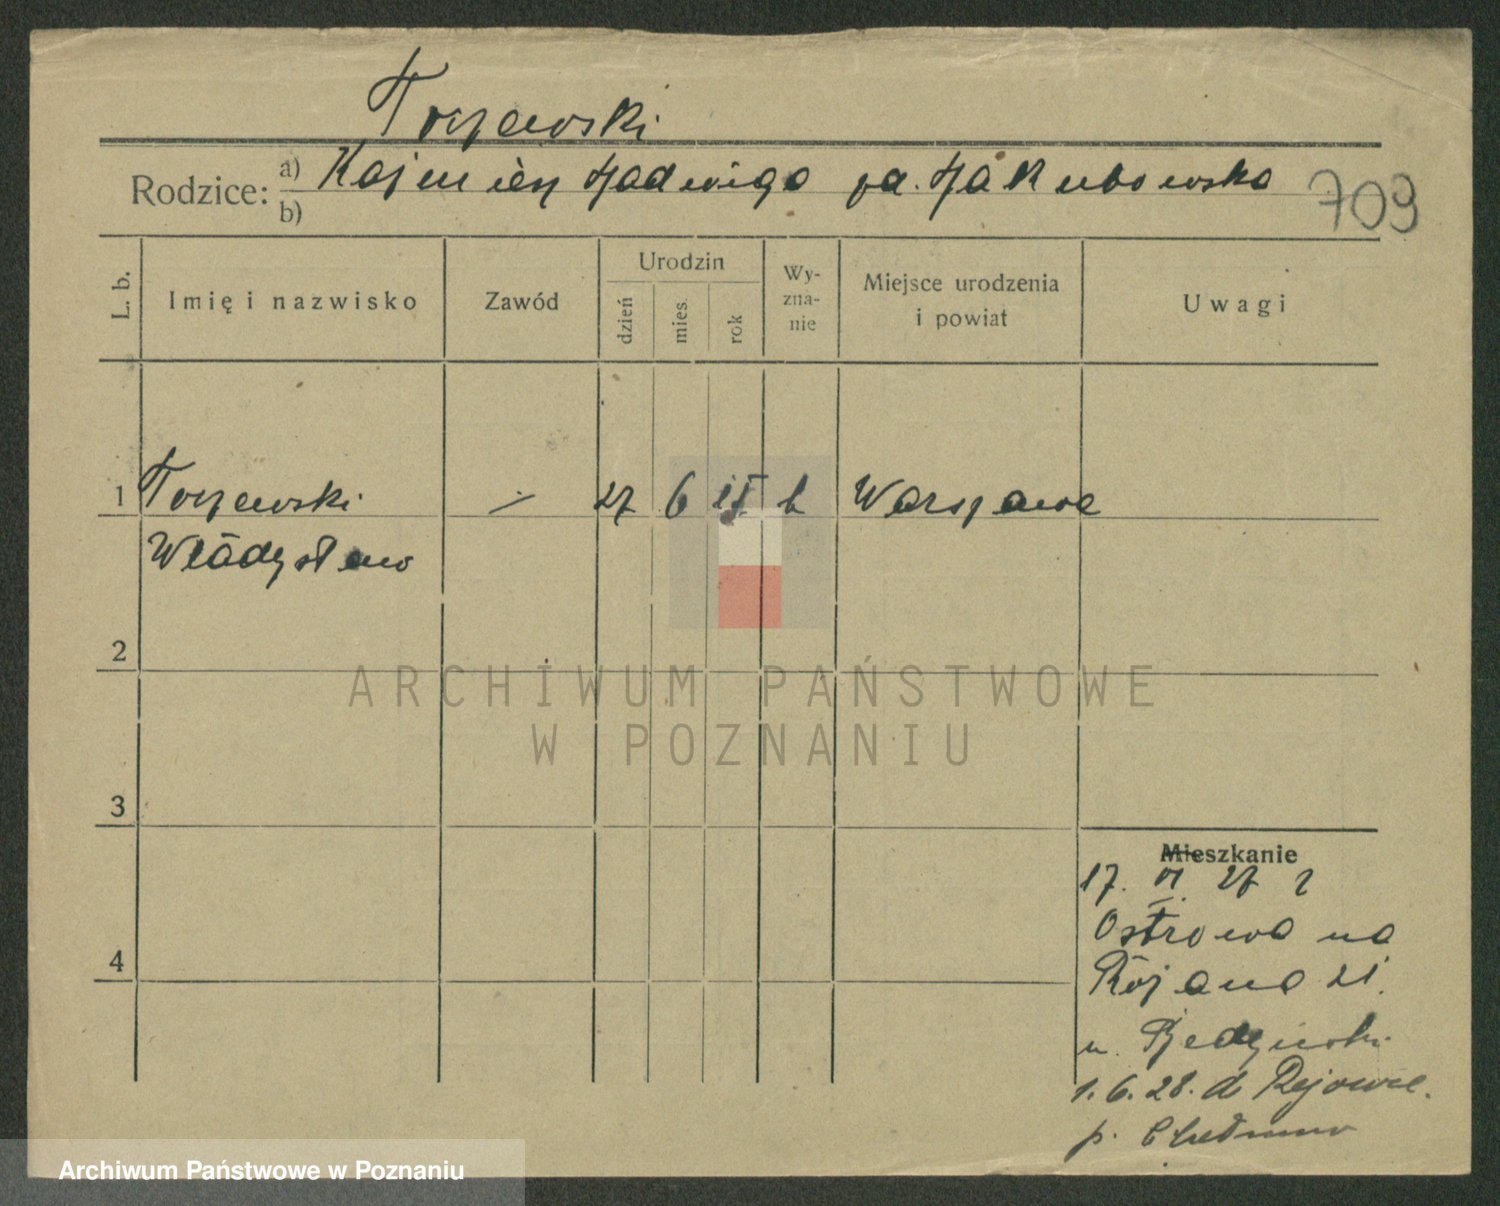 Torzewski
Rodzice: a) Kazimierz Jadwiga za. Jakubowska
b)
709
L. b.
Imię i nazwisko
Zawód
Urodzin
dzień
mies.
rok
Wy-
zna-
nie
Miejsce urodzenia
i powiat
Uwagi
1 Torzewski / 27 6 15 k Warszawa
Władysław
2
3
4
Mieszkanie
17. VI. 27 z
Ostrowa na
Różana 21.
u.
1.6.28. d Rejowca.
p. Chełmno
ARCHIWUM PAŃSTWOWE
W POZNANIU
Archiwum Państwowe w Poznaniu